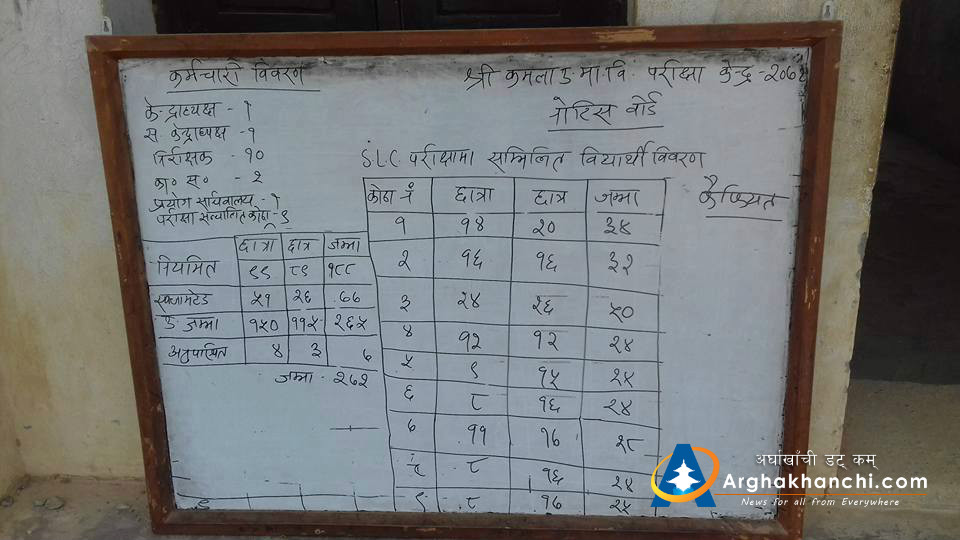 कर्मचारी विवरण
केन्द्राध्यक्ष - १
स. केन्द्राध्यक्ष - १
निरीक्षक - १०
का० स० - २
प्रयोग सहि कार्यालय - १
परीक्षा सञ्चालित कोठा - ९
छात्रा छात्र जम्मा
नियमित ९९ ८९ १८८
५१ २६ ७७
कु जम्मा १५० ११५ २६५
अनुपस्थित ४ ३ ७
जम्मा - २७२
श्री कमला उ.मा.वि. परीक्षा केन्द्र - २०७२
नोटिस वोर्ड
S.L.C. परीक्षामा सम्मिलित विद्यार्थी विवरण
कोठा नं छात्रा छात्र जम्मा कैफियत
१ १४ २० ३४
२ १६ १६ ३२
३ २४ २६ ५०
४ १२ १२ २४
५ ९ १५ २४
६ ८ १६ २४
७ ११ १७ २८
८ १६ २४
९ ८ १७ २५
अर्घाखाँची डट् कम्
Arghakhanchi.com
News for all from Everywhere